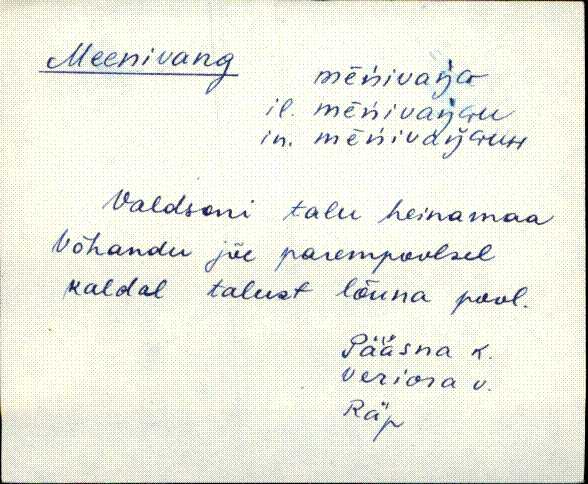 Meenivang
mēńivaŋɢ
il. mēńivaŋɢu
in. mēńivaŋɢuн
Valdsoni talu heinamaa
Võhandu jõe parempoolsel
kaldal talust lõuna pool.
Pääsna k.
Veriora v.
Räp